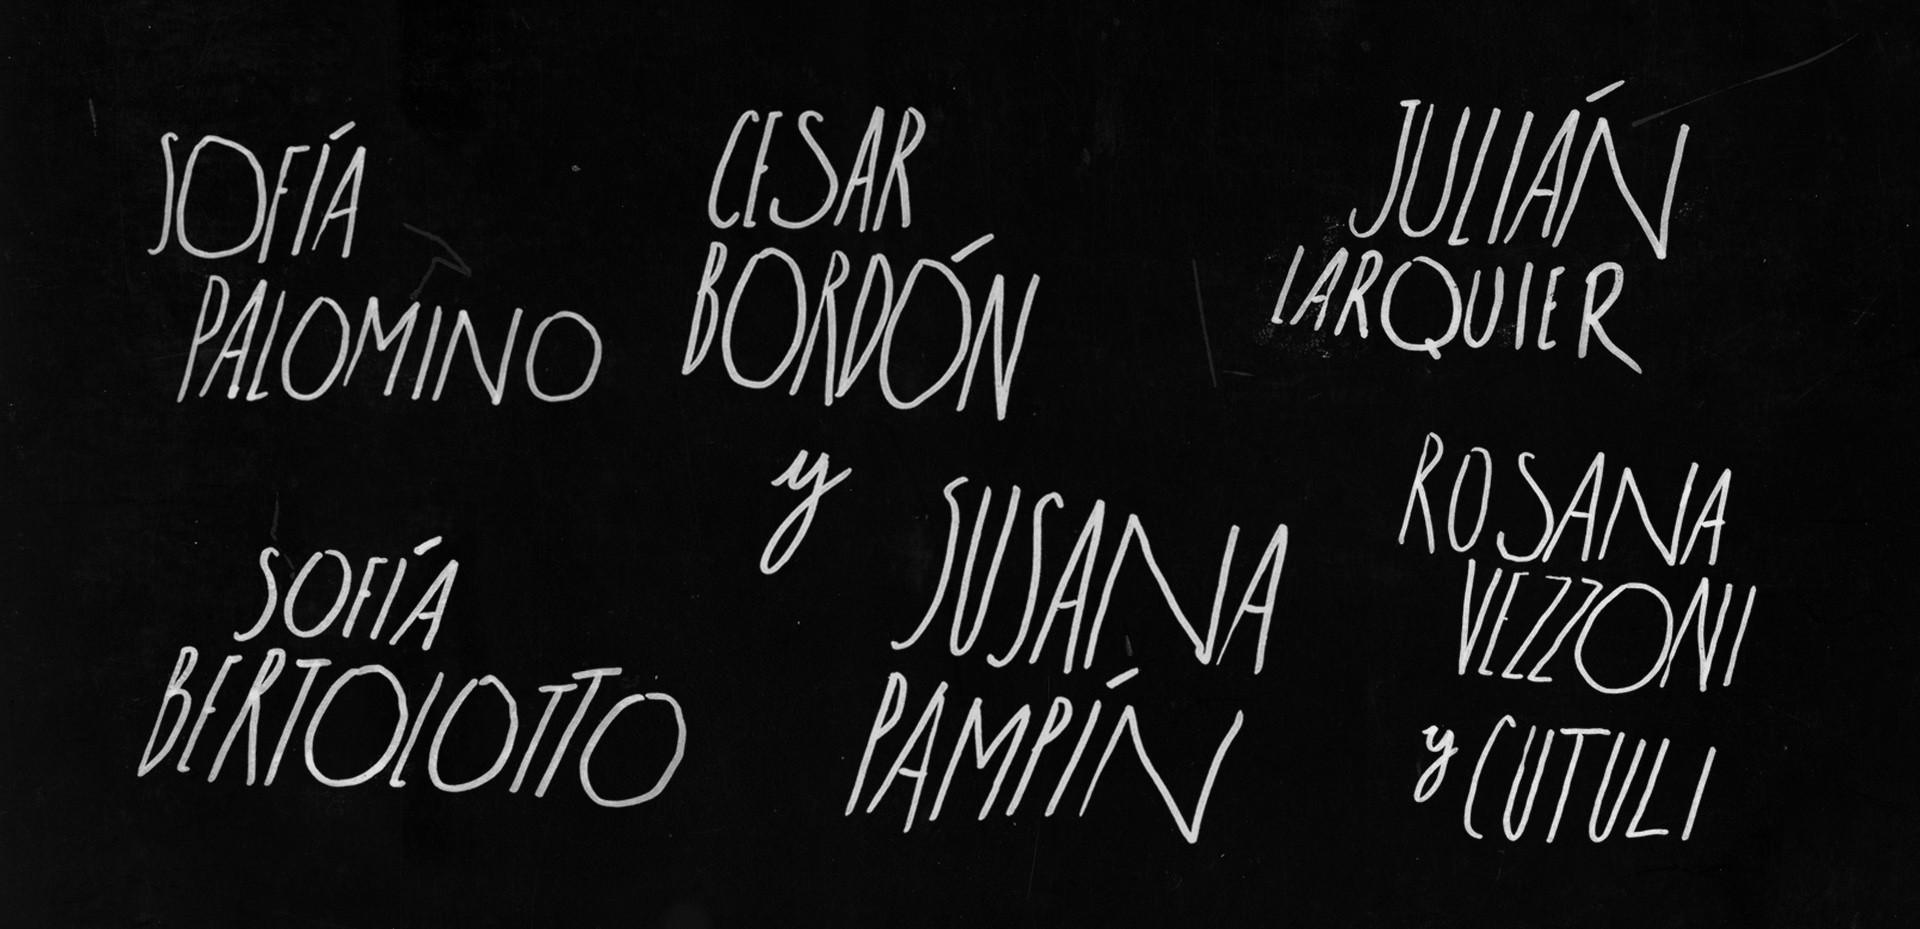 SOFÍA
PALOMINO
CESAR
BORDÓN
JULIÁN
LARQUIER
SOFÍA
BERTOLOTTO
y
SUSANA
PAMPÍN
ROSANA
VEZZONI
y CUTULI